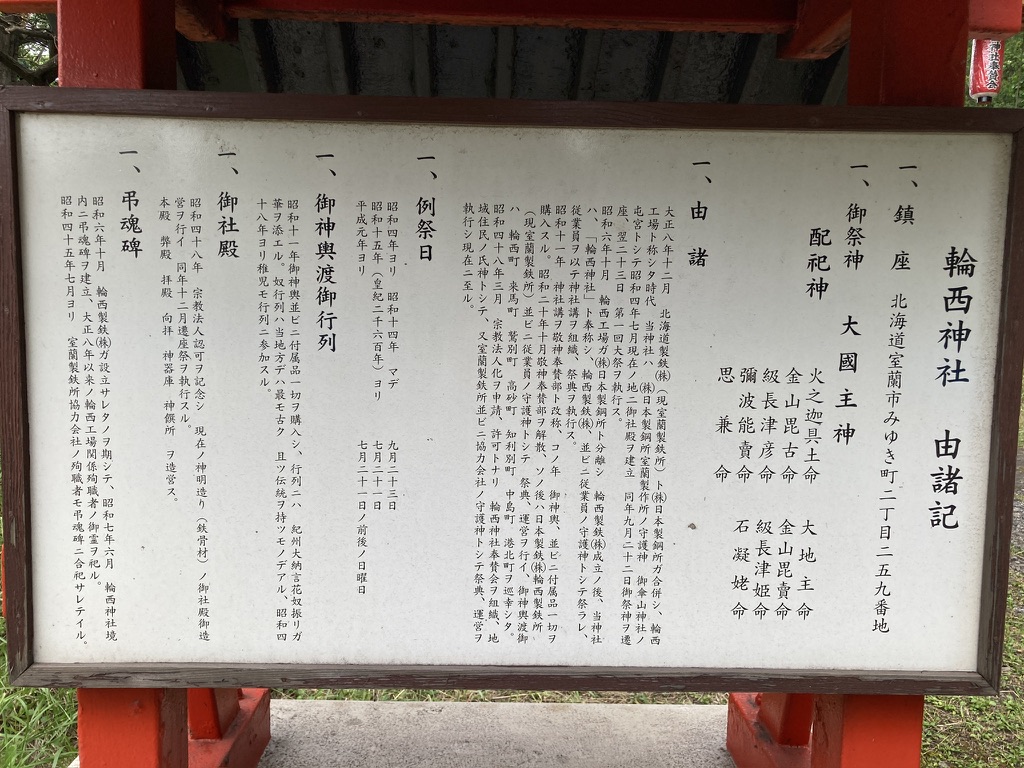 輪西神社 由諸記
一、鎮座 北海道室蘭市みゆき町二丁目二五九番地
一、御祭神 大國主神
配祀神
火之迦具土命 大地主命
金山毘古命 金山毘賣命
級長津彦命 級長津姫命
彌波能賣命 石凝姥命
思兼命
一、由諸
大正八年十二月 北海道製鉄㈱(現室蘭製鉄所)ト㈱日本製鋼所ガ合併シ、輪西
工場ト称シタ時代 当神社ハ ㈱日本製鋼所室蘭製作所ノ守護神 御傘山神社ノ
屯宮トシテ昭和四年七月現在ノ地ニ御社殿ヲ建立 同年九月二十二日御祭神ヲ遷
座、翌二十三日 第一回大祭ヲ執行ス。
昭和六年十月 輪西工場ガ㈱日本製鋼所ト分離シ 輪西製鉄㈱成立ノ後、当神社
ハ、「輪西神社」ト奉称シ、輪西製鉄㈱、並ビニ従業員ノ守護神トシテ祭ラレ、
従業員ヲ以テ神社講ヲ組織、祭典ヲ執行ス。
昭和十一年 神社講ヲ敬神奉賛部ト改称、コノ年 御神輿、並ビニ付属品一切ヲ
購入スル。昭和二十年十月敬神奉賛部ヲ解散、ソノ後ハ日本製鉄㈱輪西製鉄所
(現室蘭製鉄所)並ビニ従業員ノ守護神トシテ 祭典、運営ヲ行イ、御神輿渡御
ハ 輪西町 来馬町 鷲別町 高砂町 知利別町 中島町 港北町ヲ巡幸シタ。
昭和四十八年三月 宗教法人化ヲ申請、許可トナリ 輪西神社奉賛会ヲ組織、地
域住民ノ氏神トシテ、又室蘭製鉄所並ビニ協力会社ノ守護神トシテ祭典、運営ヲ
執行シ現在ニ至ル。
一、例祭日
昭和四年ヨリ 昭和十四年 マデ 九月二十三日
昭和十五年(皇紀二千六百年)ヨリ 七月二十一日
平成元年ヨリ 七月二十一日ノ前後ノ日曜日
一、御神輿渡御行列
昭和十一年御神輿並ビニ付属品一切ヲ購入シ、行列ニハ 紀州大納言花奴振リガ
華ヲ添エル。奴行列ハ当地方デハ最モ古ク 且ツ伝統ヲ持ツモノデアル、昭和四
十八年ヨリ稚児モ行列ニ参加スル。
一、御社殿
昭和四十八年 宗教法人認可ヲ記念シ 現在ノ神明造り(鉄骨材)ノ御社殿御造
営ヲ行イ 同年十二月遷座祭ヲ執行スル。
本殿 弊殿 拝殿 向拝 神器庫 神饌所 ヲ造営ス。
一、弔魂碑
昭和六年十月 輪西製鉄㈱ガ設立サレタノヲ期シテ、昭和七年六月 輪西神社境
内ニ弔魂碑ヲ建立、大正八年以来ノ輪西工場関係殉職者ノ御霊ヲ祀ル。
昭和四十五年七月ヨリ 室蘭製鉄所協力会社ノ殉職者モ弔魂碑ニ合祀サレテイル。